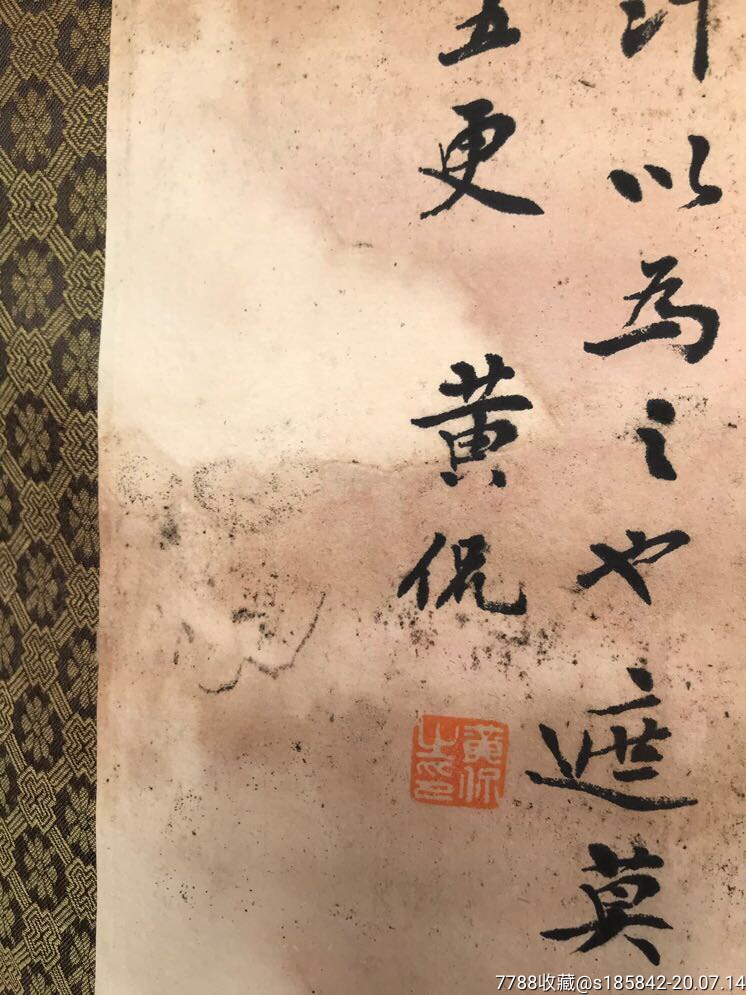 以為之也遮莫
五更
黃侃
黃侃之印
7788收藏@s185842-20.07.14